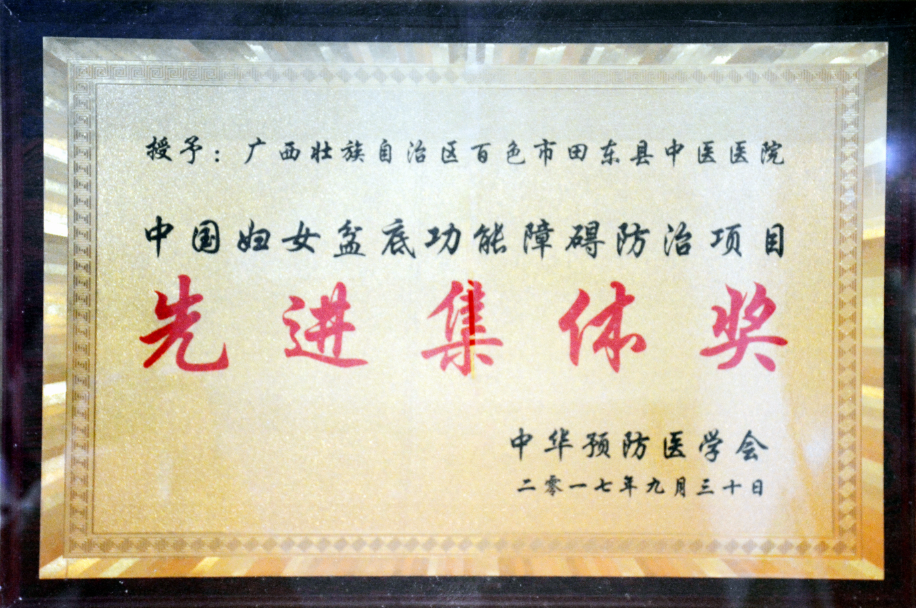 授予：广西壮族自治区百色市田东县中医医院
中国妇女盆底功能障碍防治项目
先进集体奖
中华预防医学会
二零一七年九月三十日